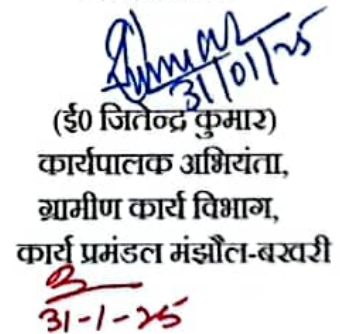 31/01/25
(ई0 जितेन्द्र कुमार)
कार्यपालक अभियंता,
ग्रामीण कार्य विभाग,
कार्य प्रमंडल मंझौल-बखरी
31-1-25